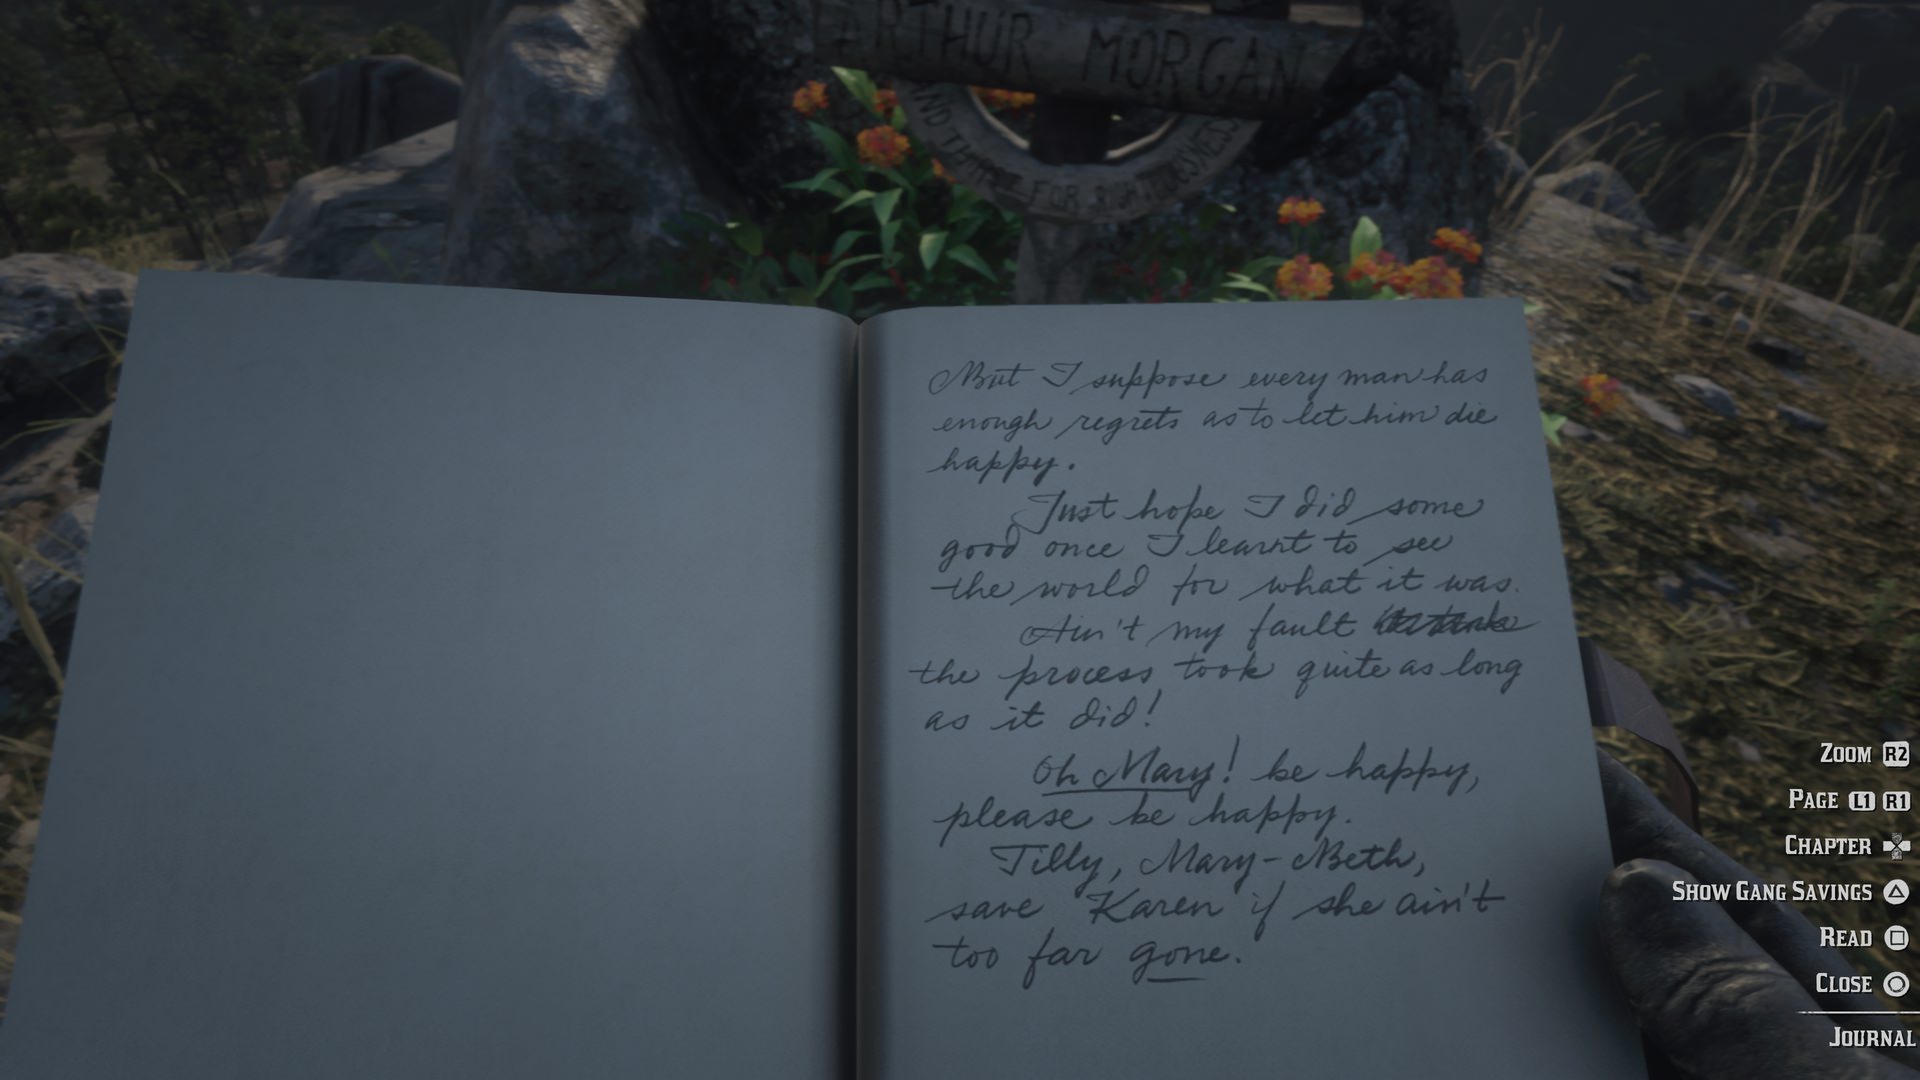 ARTHUR MORGAN
AND THIRST FOR RIGHTEOUSNESS
But I suppose every man has
enough regrets as to let him die
happy.
Just hope I did some
good once I learnt to see
the world for what it was.
Ain't my fault
the process took quite as long
as it did!
Oh Mary! be happy,
please be happy.
Tilly, Mary-Beth,
save Karen if she ain't
too far gone.
ZOOM R2
PAGE L1 R1
CHAPTER
SHOW GANG SAVINGS
READ
CLOSE
JOURNAL